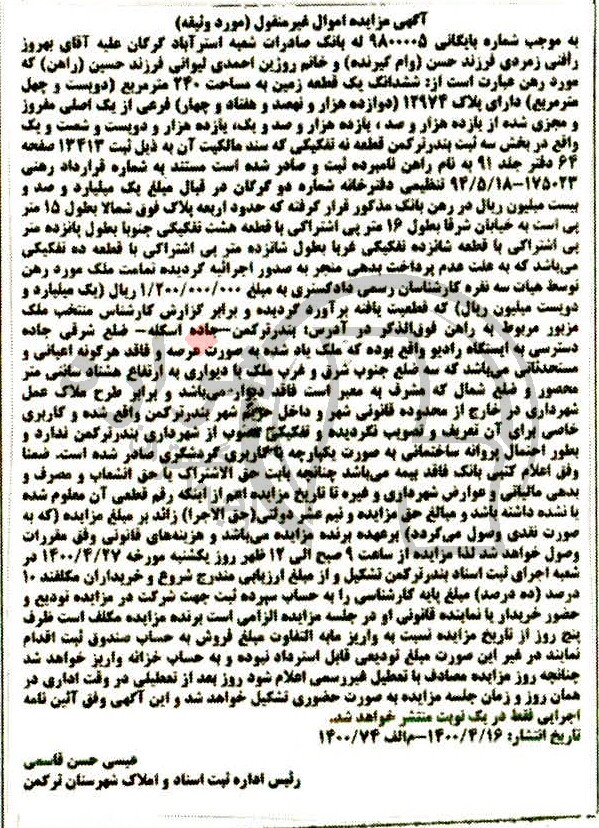 آگهی مزایده اموال غیرمنقول (مورد وثیقه)
به موجب شماره بایگانی ۹۸۰۰۰۰۵ له بانک صادرات شعبه استرآباد گرگان علیه آقای بهروز
رافتی زمردی فرزند حسن (وام گیرنده) و خانم روزین احمدی لیوانی فرزند حسین (راهن) که
مورد رهن عبارت است از: ششدانگ یک قطعه زمین به مساحت ۲۴۰ مترمربع (دویست و چهل
مترمربع) دارای پلاک ۱۲۹۷۴ (دوازده هزار و نهصد و هفتاد و چهار) فرعی از یک اصلی مفروز
و مجزی شده از یازده هزار و صد ، یازده هزار و صد و یک، یازده هزار و دویست و شصت و یک
واقع در بخش سه ثبت بندرترکمن قطعه نه تفکیکی که سند مالکیت آن به ذیل ثبت ۱۳۴۱۳ صفحه
۶۴ دفتر جلد ۹۱ به نام راهن نامبرده ثبت و صادر شده است مستند به شماره قرارداد رهنی
۱۷۵۰۲۳-۹۴/۵/۱۸ تنظیمی دفترخانه شماره دو گرگان در قبال مبلغ یک میلیارد و صد و
بیست میلیون ریال در رهن بانک مذکور قرار گرفته که حدود اربعه پلاک فوق شمالا بطول ۱۵ متر
پی است به خیابان شرقا بطول ۱۶ متر پی اشتراکی با قطعه هشت تفکیکی جنوبا بطول پانزده متر
پی اشتراکی با قطعه شانزده تفکیکی غربا بطول شانزده متر پی اشتراکی با قطعه ده تفکیکی
می‌باشد که به علت عدم پرداخت بدهی منجر به صدور اجرائیه گردیده تمامت ملک مورد رهن
توسط هیات سه نفره کارشناسان رسمی دادگستری به مبلغ ۱/۲۰۰/۰۰۰/۰۰۰ ریال (یک میلیارد و
دویست میلیون ریال) که قطعیت یافته برآورد گردیده و برابر گزارش کارشناس منتخب ملک
مزبور مربوط به راهن فوق‌الذکر در آدرس: بندرترکمن-جاده اسکله- ضلع شرقی جاده
دسترسی به ایستگاه رادیو واقع بوده که ملک یاد شده به صورت عرصه و فاقد هرگونه اعیانی و
مستحدثاتی می‌باشد که سه ضلع جنوب شرق و غرب ملک با دیواری به ارتفاع هشتاد سانتی متر
محصور و ضلع شمال که مشرف به معبر است فاقد دیوار می‌باشد و برابر طرح ملاک عمل
شهرداری در خارج از محدوده قانونی شهر و داخل حریم شهر بندرترکمن واقع شده و کاربری
خاصی برای آن تعریف و تصویب نگردیده و تفکیکی مصوب از شهرداری بندرترکمن ندارد و
بطور احتمال پروانه ساختمانی به صورت یکپارچه با کاربری گردشگری صادر شده است. ضمنا
وفق اعلام کتبی بانک فاقد بیمه می‌باشد چنانچه بابت حق الاشتراک یا حق انشعاب و مصرف و
بدهی مالیاتی و عوارض شهرداری و غیره تا تاریخ مزایده اعم از اینکه رقم قطعی آن معلوم شده
یا نشده داشته باشد و مبالغ حق مزایده و نیم عشر دولتی(حق الاجرا) زائد بر مبلغ مزایده (که به
صورت نقدی وصول می‌گردد) برعهده برنده مزایده می‌باشد و هزینه‌های قانونی وفق مقررات
وصول خواهد شد لذا مزایده از ساعت ۹ صبح الی ۱۲ ظهر روز یکشنبه مورخه ۱۴۰۰/۴/۲۷ در
شعبه اجرای ثبت اسناد بندرترکمن تشکیل و از مبلغ ارزیابی مندرج شروع و خریداران مکلفند ۱۰
درصد (ده درصد) مبلغ پایه کارشناسی را به حساب سپرده ثبت جهت شرکت در مزایده تودیع و
حضور خریدار یا نماینده قانونی او در جلسه مزایده الزامی است برنده مزایده مکلف است ظرف
پنج روز از تاریخ مزایده نسبت به واریز مابه التفاوت مبلغ فروش به حساب صندوق ثبت اقدام
نمایند در غیر این صورت مبلغ تودیعی قابل استرداد نبوده و به حساب خزانه واریز خواهد شد
چنانچه روز مزایده مصادف با تعطیل غیررسمی اعلام شود روز بعد از تعطیلی در وقت اداری در
همان روز و زمان جلسه مزایده به صورت حضوری تشکیل خواهد شد و این آگهی وفق آئین نامه
اجرایی فقط در یک نوبت منتشر خواهد شد.
تاریخ انتشار: ۱۴۰۰/۴/۱۶-م‌الف ۱۴۰۰/۷۴
عیسی حسن قاسمی
رئیس اداره ثبت اسناد و املاک شهرستان ترکمن